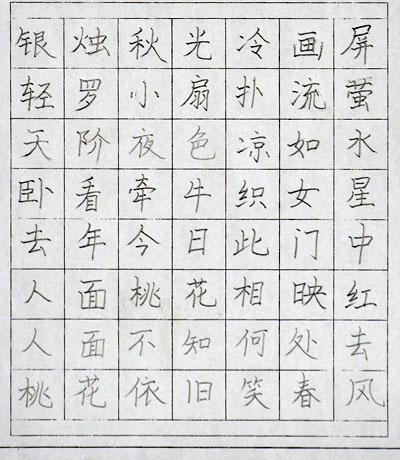 银烛秋光冷画屏
轻罗小扇扑流萤
天阶夜色凉如水
卧看牵牛织女星
去年今日此门中
人面桃花相映红
人面不知何处去
桃花依旧笑春风